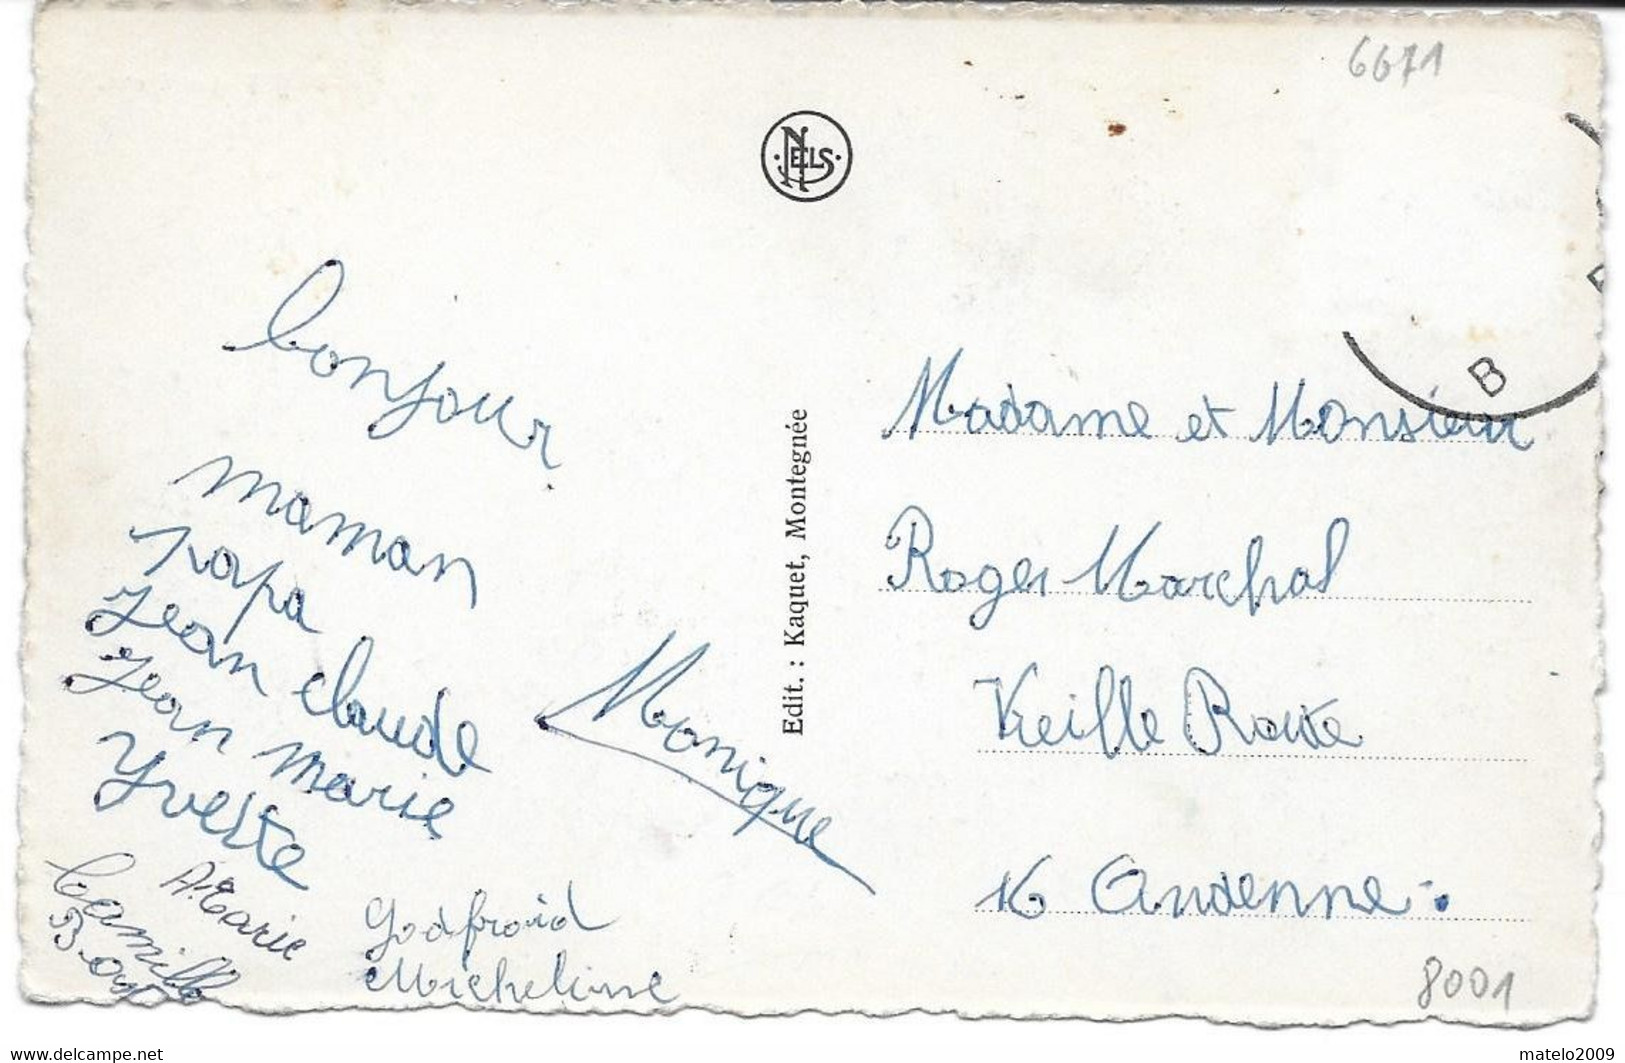 6671
NELS
bonjour
maman
papa
Jean claude
Jean Marie
Yvette
Monique
Camille
A. Marie
Godfroid
Micheline
Edit. : Kaquet, Montegnée
B
Madame et Monsieur
Roger Marchal
Vieille Route
16 Andenne.
8001
www.delcampe.net
matelo2009